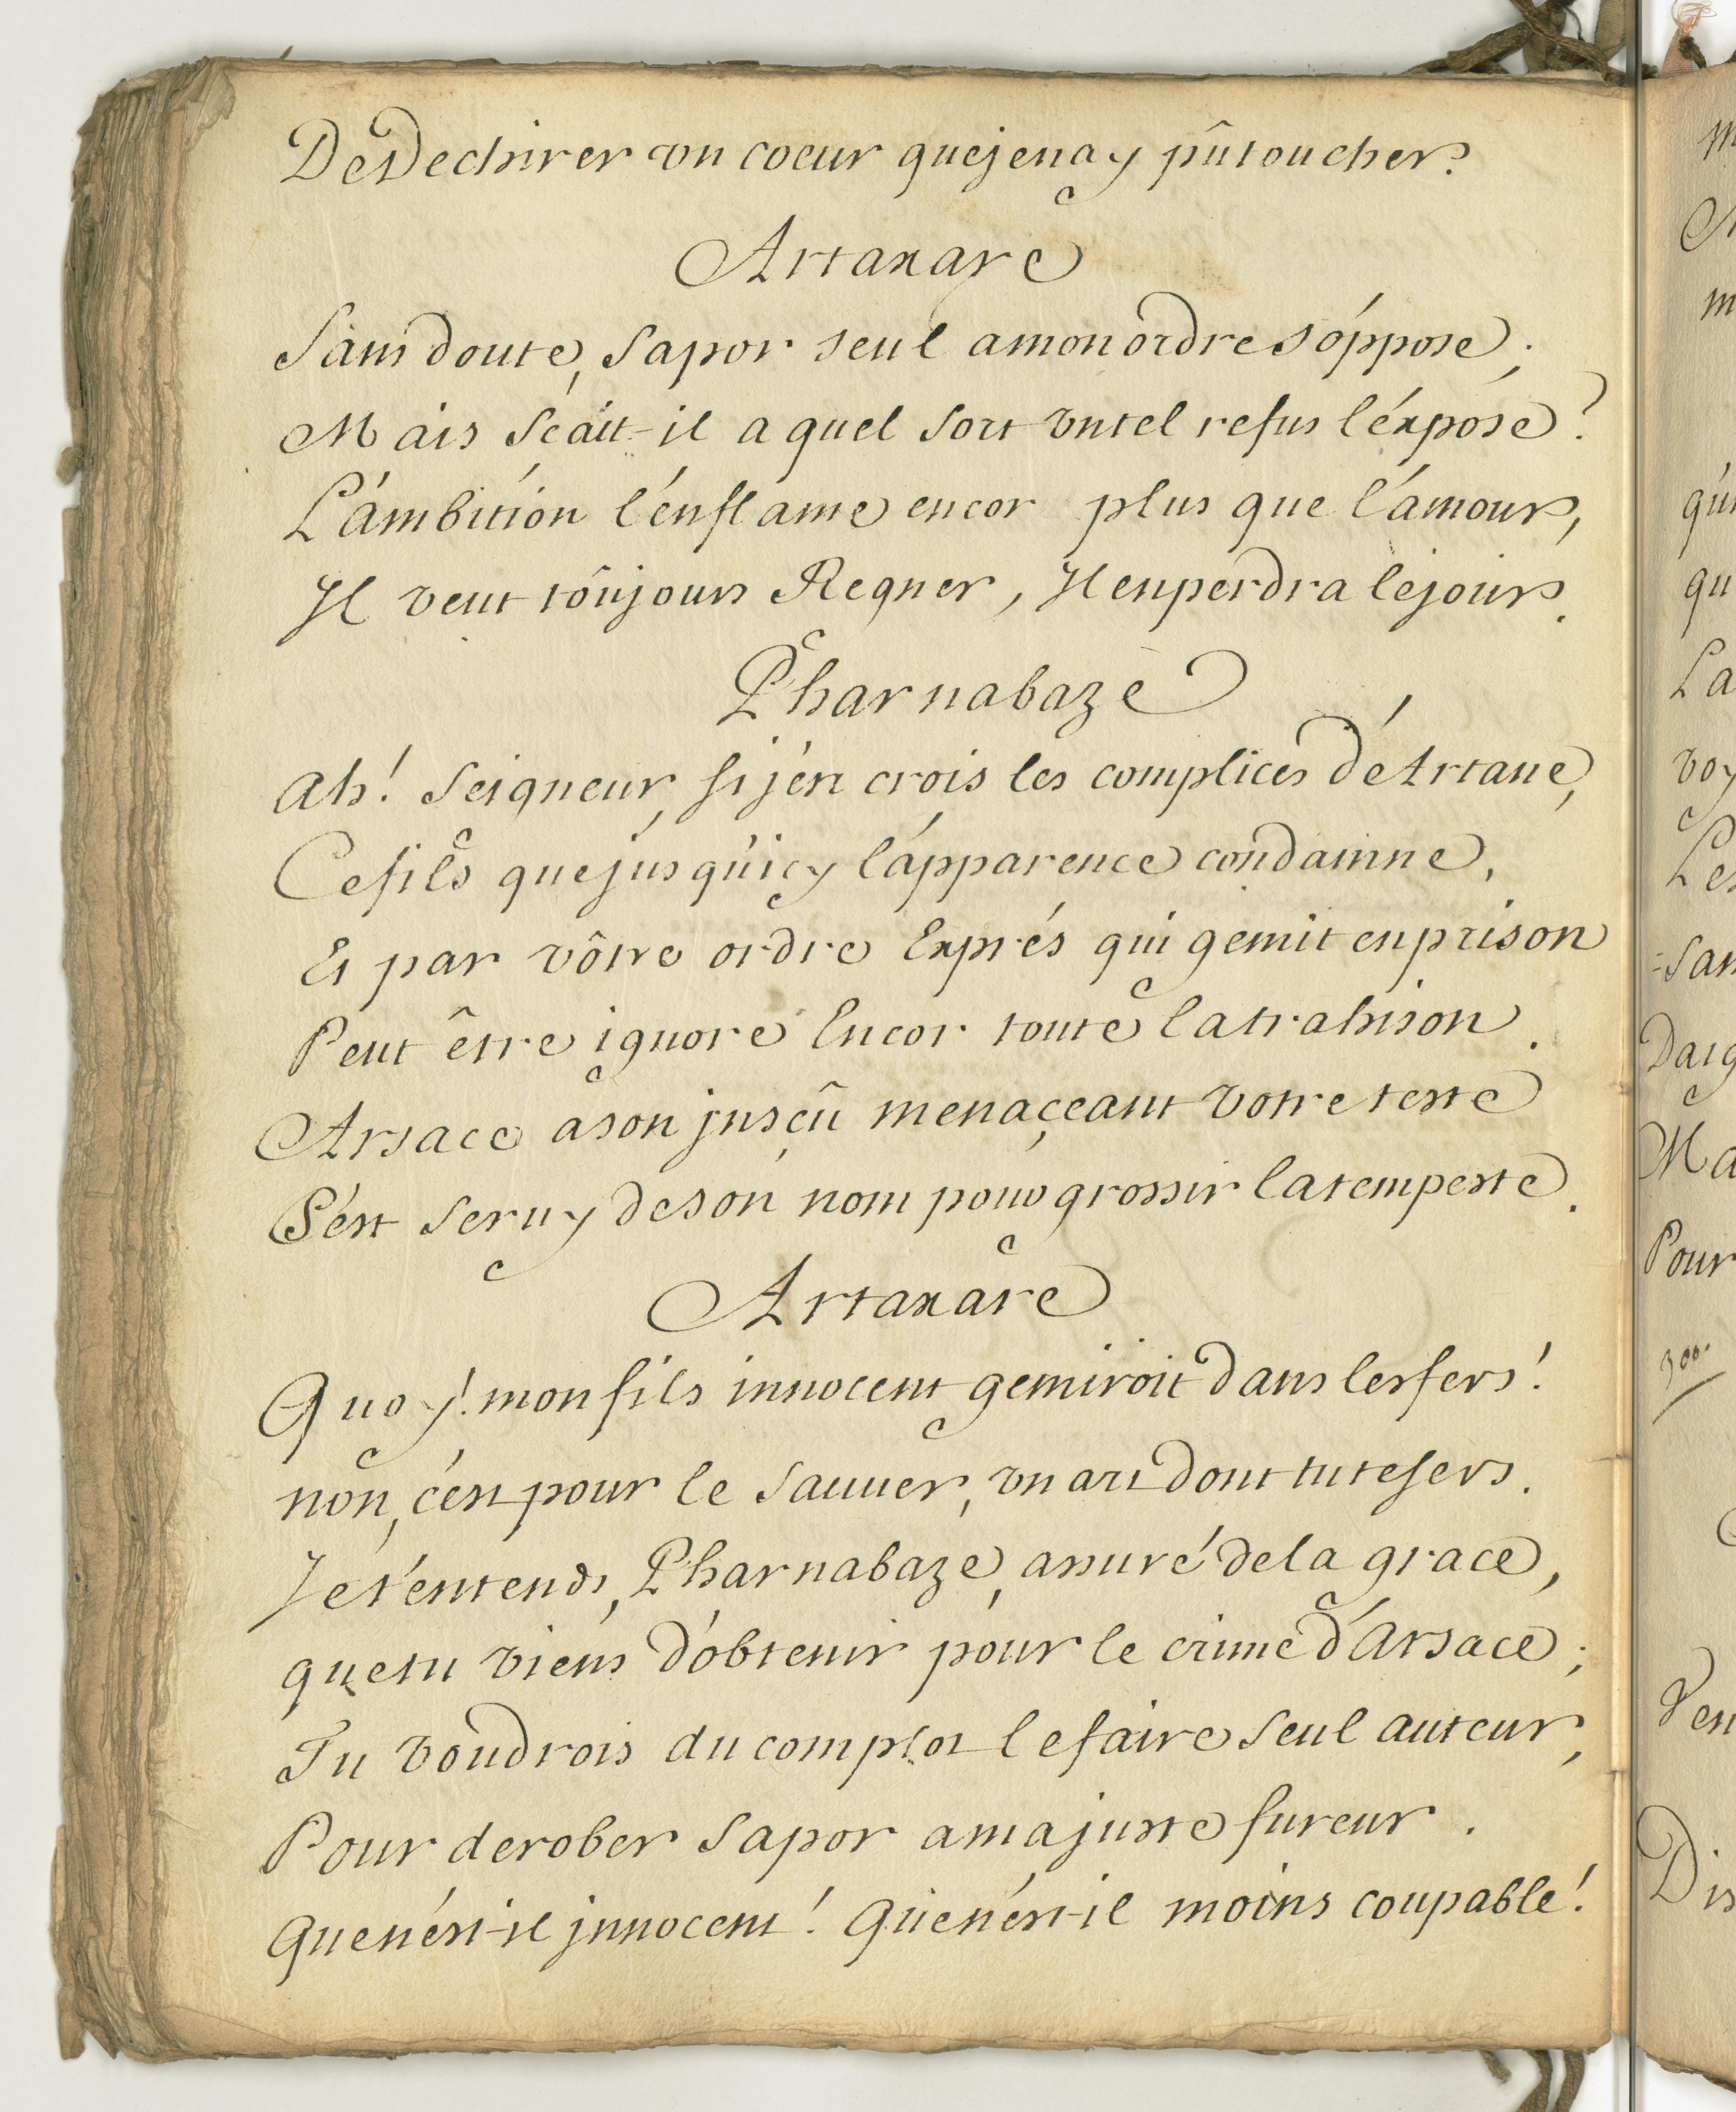 De Dechirer vn coeur que je nay pû toucher?
Artaxare
Sans doute, Sapor seul a mon ordre s'óppose;
Mais Scait-il a quel Sort vn tel refus l'éxpose?
L'ámbitión l'énflame encor plus que l'ámour,
Il veut toûjours Regner, Il en perdra le jour.
Pharnabaze
Ah! Seigneur, si j'én crois les complices d'Artane,
Ce fils que jusqu'icy l'ápparence condamne,
Et par vôtre ordre Exprés qui gemit en prison
Peut être ignore Encor toute la trahison.
Arsace a son jnsçû menaçeant votre teste
S'ést seruy de son nom pour grossir la tempeste.
Artaxare
Quoy! mon fils innocent gemiroit dans les fers!
non, c'ést pour le sauuer, vn art dont tu te sers.
Je t'éntends, Pharnabaze, assuré de la grace,
que tu viens d'óbtenir pour le crime d'Arsace;
Tu voudrois du complot le faire seul auteur,
Pour derober Sapor a ma juste fureur.
Que n'ést-il jnnocent! Que n'ést-il moins coupable!
m
m
qu
La
voy
Les
=san
Daig
Ma
Pour
Ven
Dis